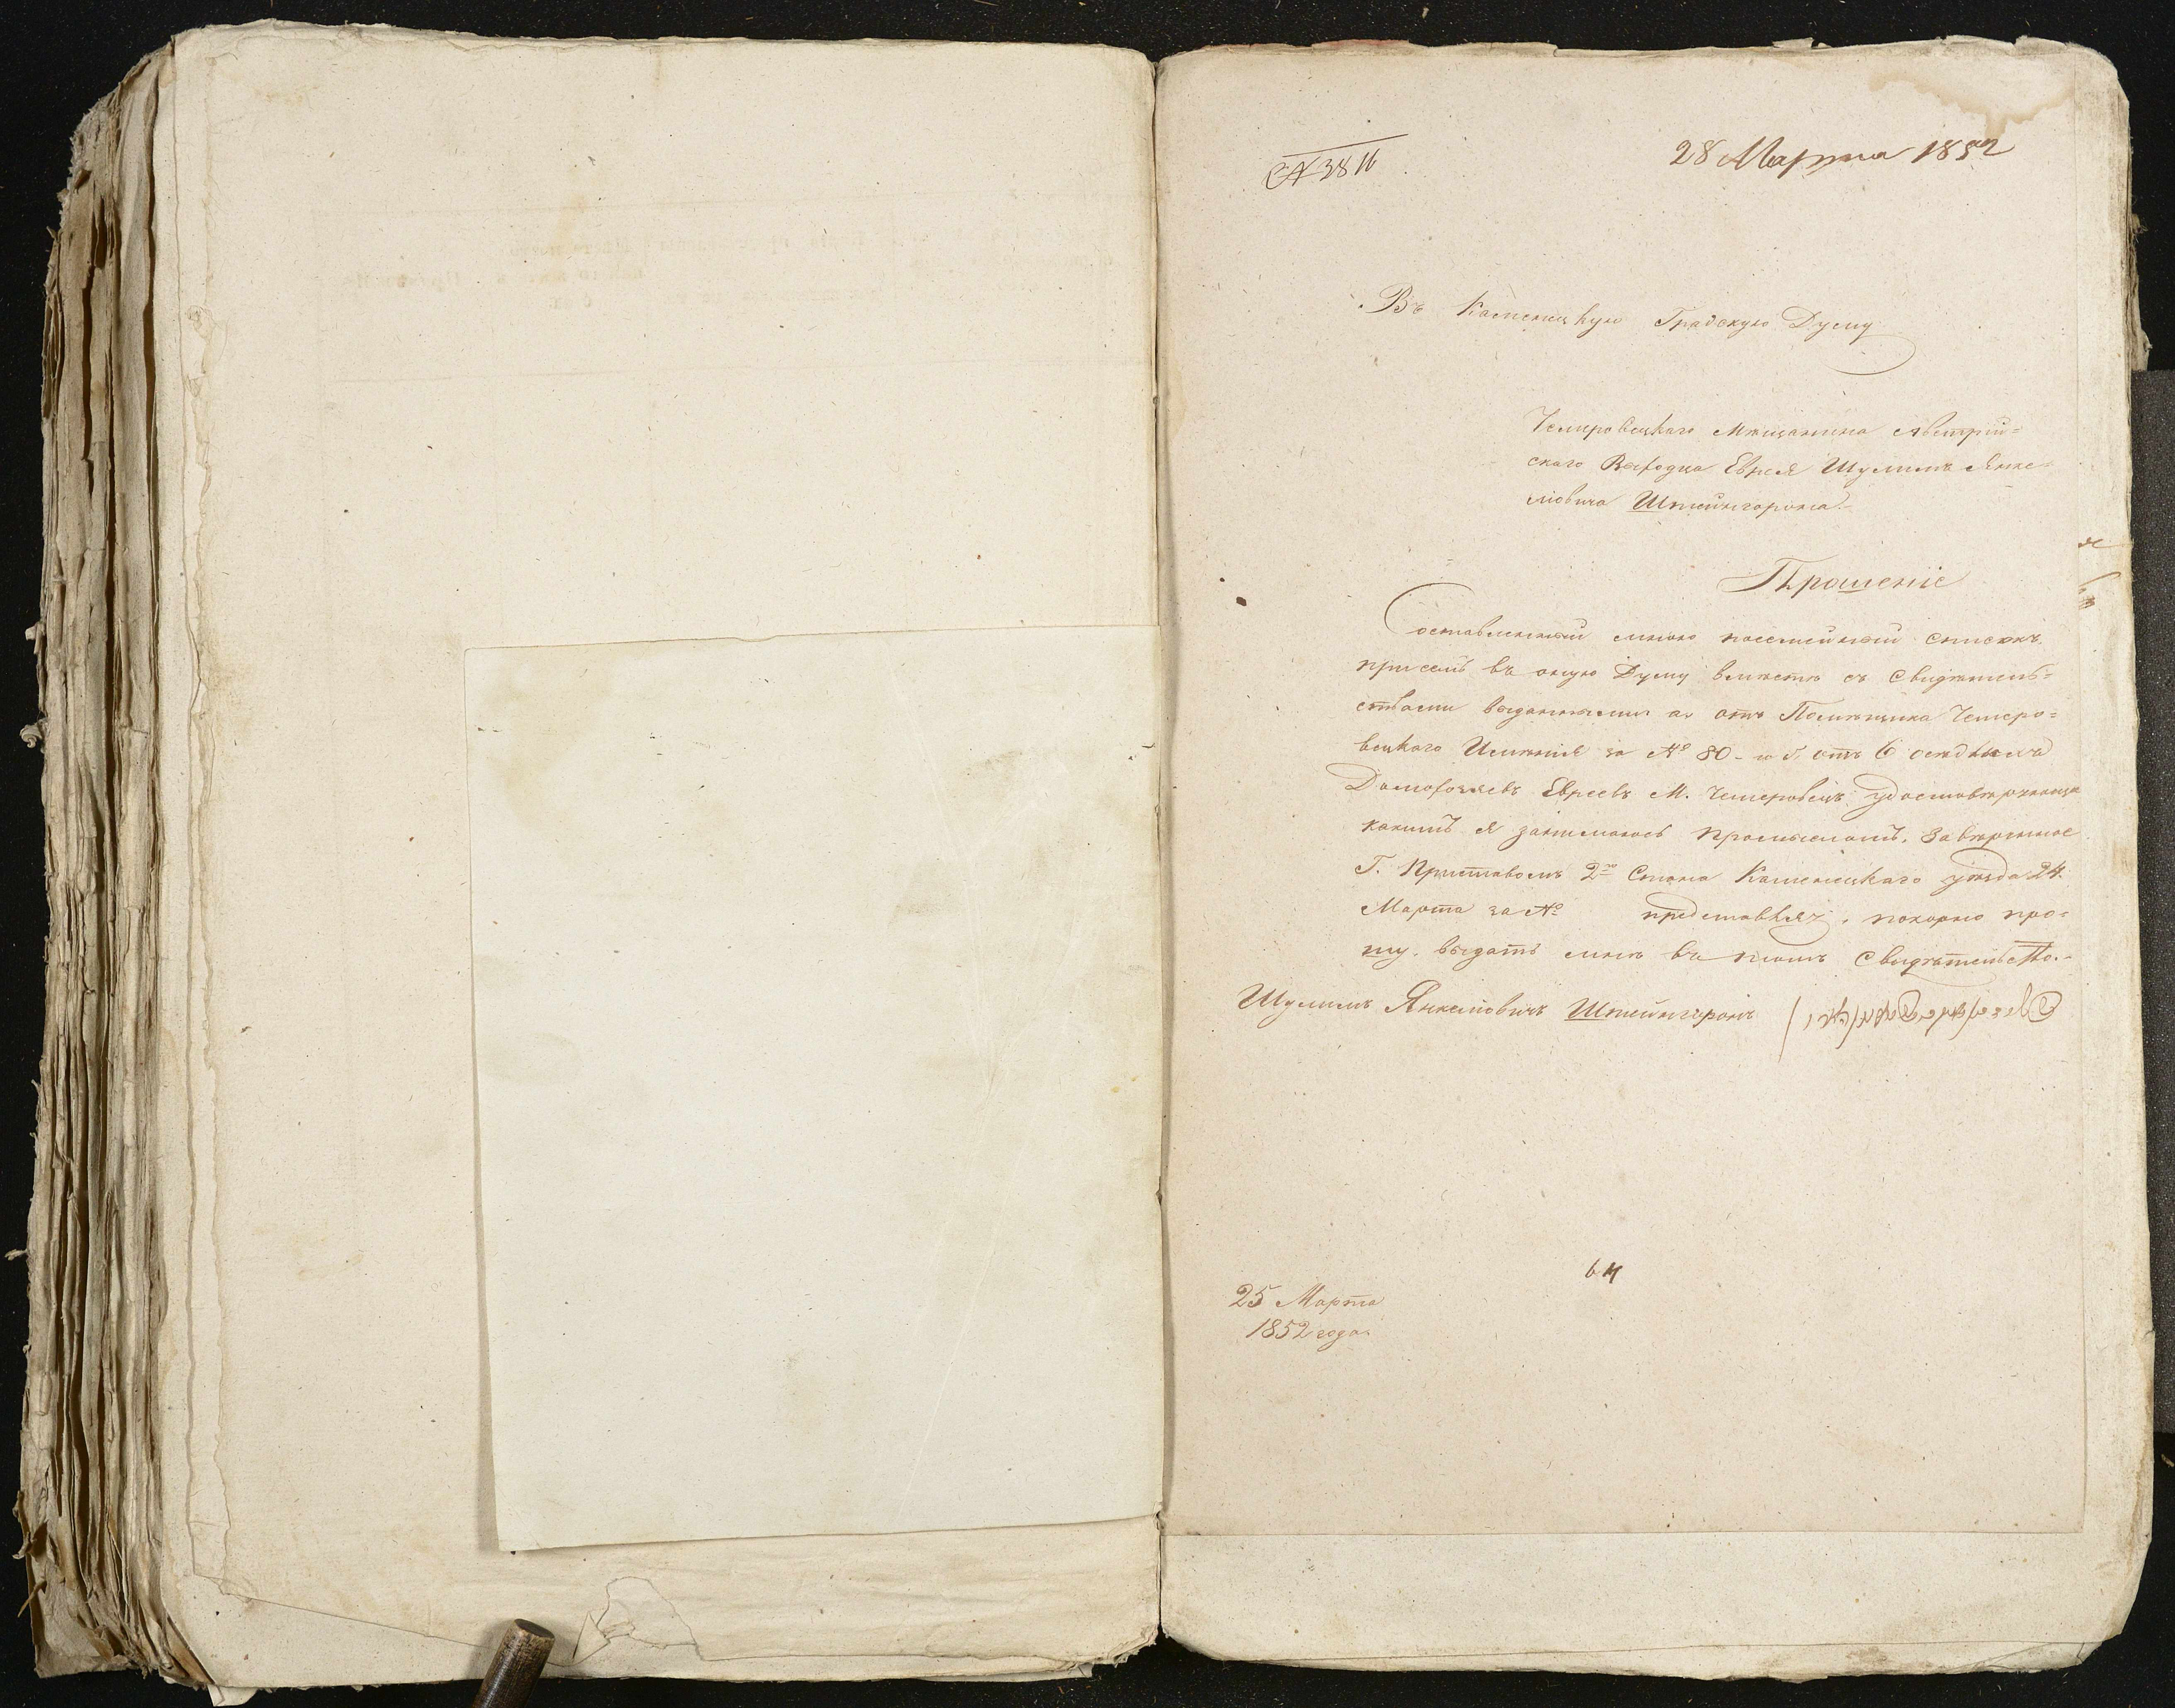 28 Марта 1852
Въ Каменецкую Градскую Думу
Чемировецкаго Мѣщанина Австрій=
скаго Выходца Еврея Шулимъ Янке=
ліовича Штейнгарона.
Прошеніе
Составленный мною посемейный списокъ
присемъ въ оную Думу вмѣстѣ съ Свидѣтель=
ствами выданными а. отъ Помѣщика Чемеро=
вецкаго Имѣнія за № 80 - и б. отъ 6 осѣдлыхъ
Домохозяевъ Евреевъ М. Чемеровецъ
какимъ я занимаюсь промысломъ, завѣренное
Г. Приставомъ 2го Стана Каменецкаго уѣзда 24.
Марта за № представляя, покорно про=
шу. выдать мнѣ въ томъ Свидѣтельство.-
Шулимъ Янкеліовичъ Штейнгаронъ
64
25 Марта
1852 года